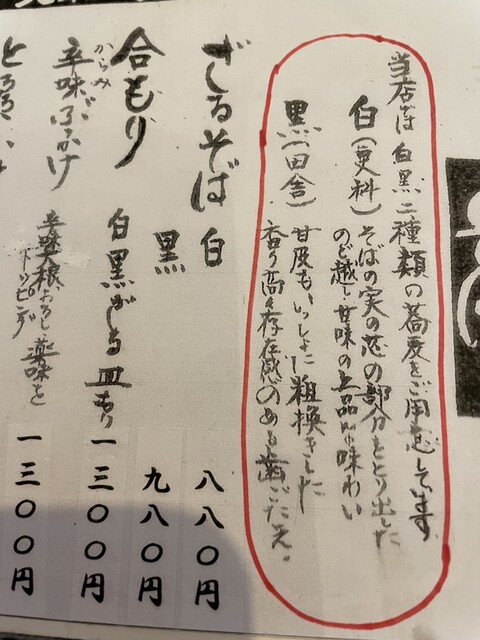 当店は白黒二種類の蕎麦をご用意しています。
白(更科)そばの実の芯の部分をとり出した
のど越し甘味の上品な味わい
黒(田舎)甘皮もいっしょに粗挽きした
香り高く存在感のある歯ごたえ。
ざるそば 白 八八〇円
黒 九八〇円
合もり 白黒ざる二皿もり 一三〇〇円
からみ
辛味ぶっかけ 辛味大根おろし、薬味を
トッピング 一三〇〇円
とろろ